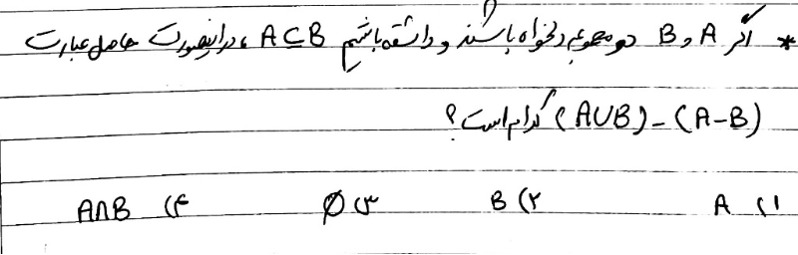 * اگر A و B دو مجموعه دلخواه باشند و داشته باشیم A⊆B ، در اینصورت حاصل عبارت
(A∪B) - (A-B) کدام است؟
۱) A ۲) B ۳) ∅ ۴) A∩B